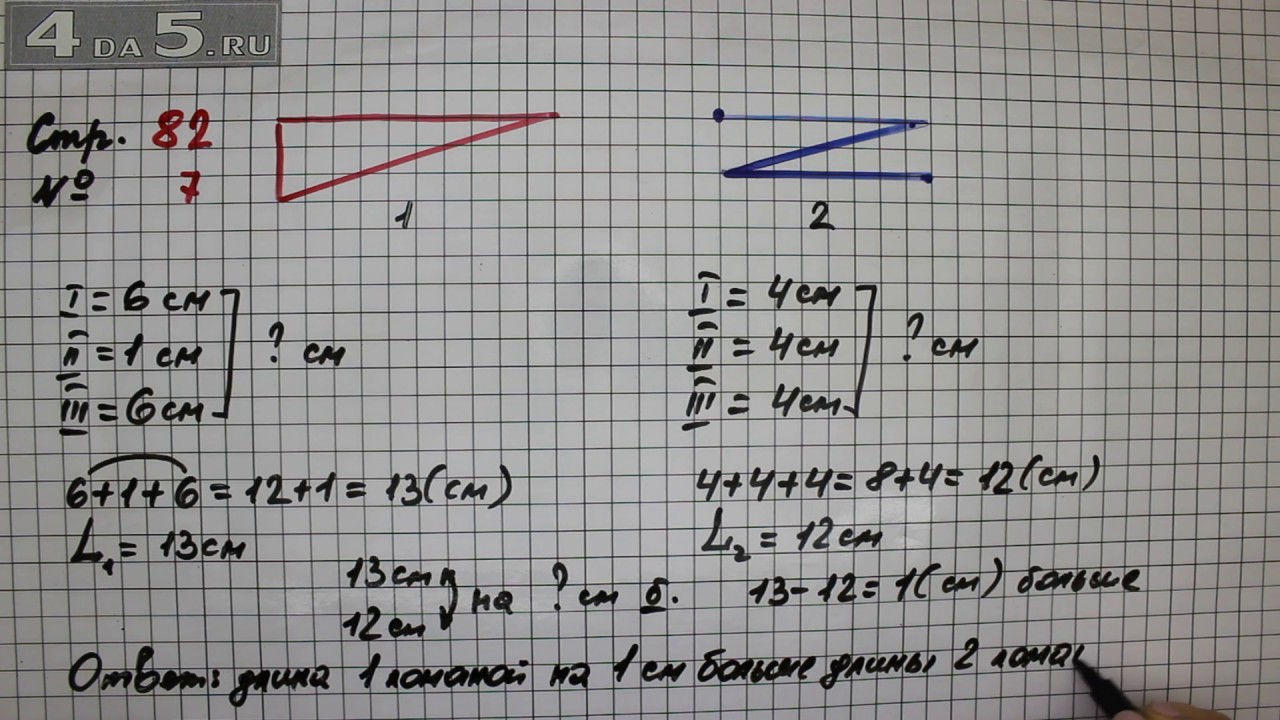 4DA5.RU
Стр. 82
№ 7
1
2
I = 6 см
II = 1 см
III = 6 см
? см
I = 4 см
II = 4 см
III = 4 см
? см
6+1+6 = 12+1 = 13 (см)
L₁ = 13 см
4+4+4 = 8+4 = 12 (см)
L₂ = 12 см
13 см
12 см
на ? см б.
13 - 12 = 1 (см) больше
Ответ: длина 1 ломаной на 1 см больше длины 2 лома